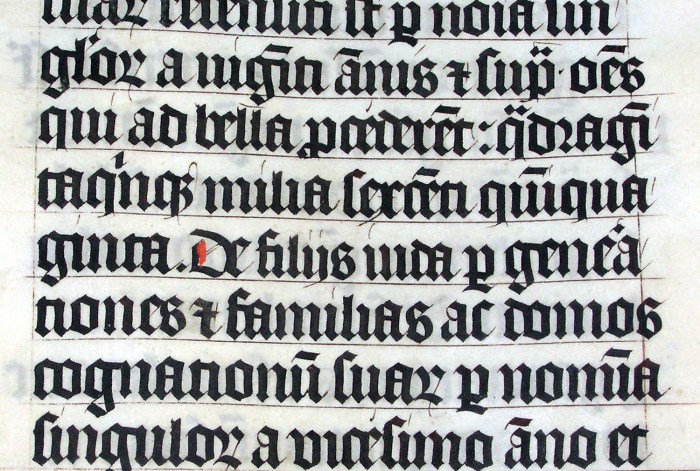 suaꝝ recensiti sūt ꝑ noīa sin
gl'oꝝ a uigīti ānis ⁊ supͣ oēs
qui ad bella ꝓcederēt: qͣdragī
taqͥnqꝫ milia sexcēti quīqua
ginta. De filijs iuda ꝑ gen̾a
tiones ⁊ familias ac domos
cognationū suaꝝ ꝑ nomīa
singuloꝝ a vicesimo āno et